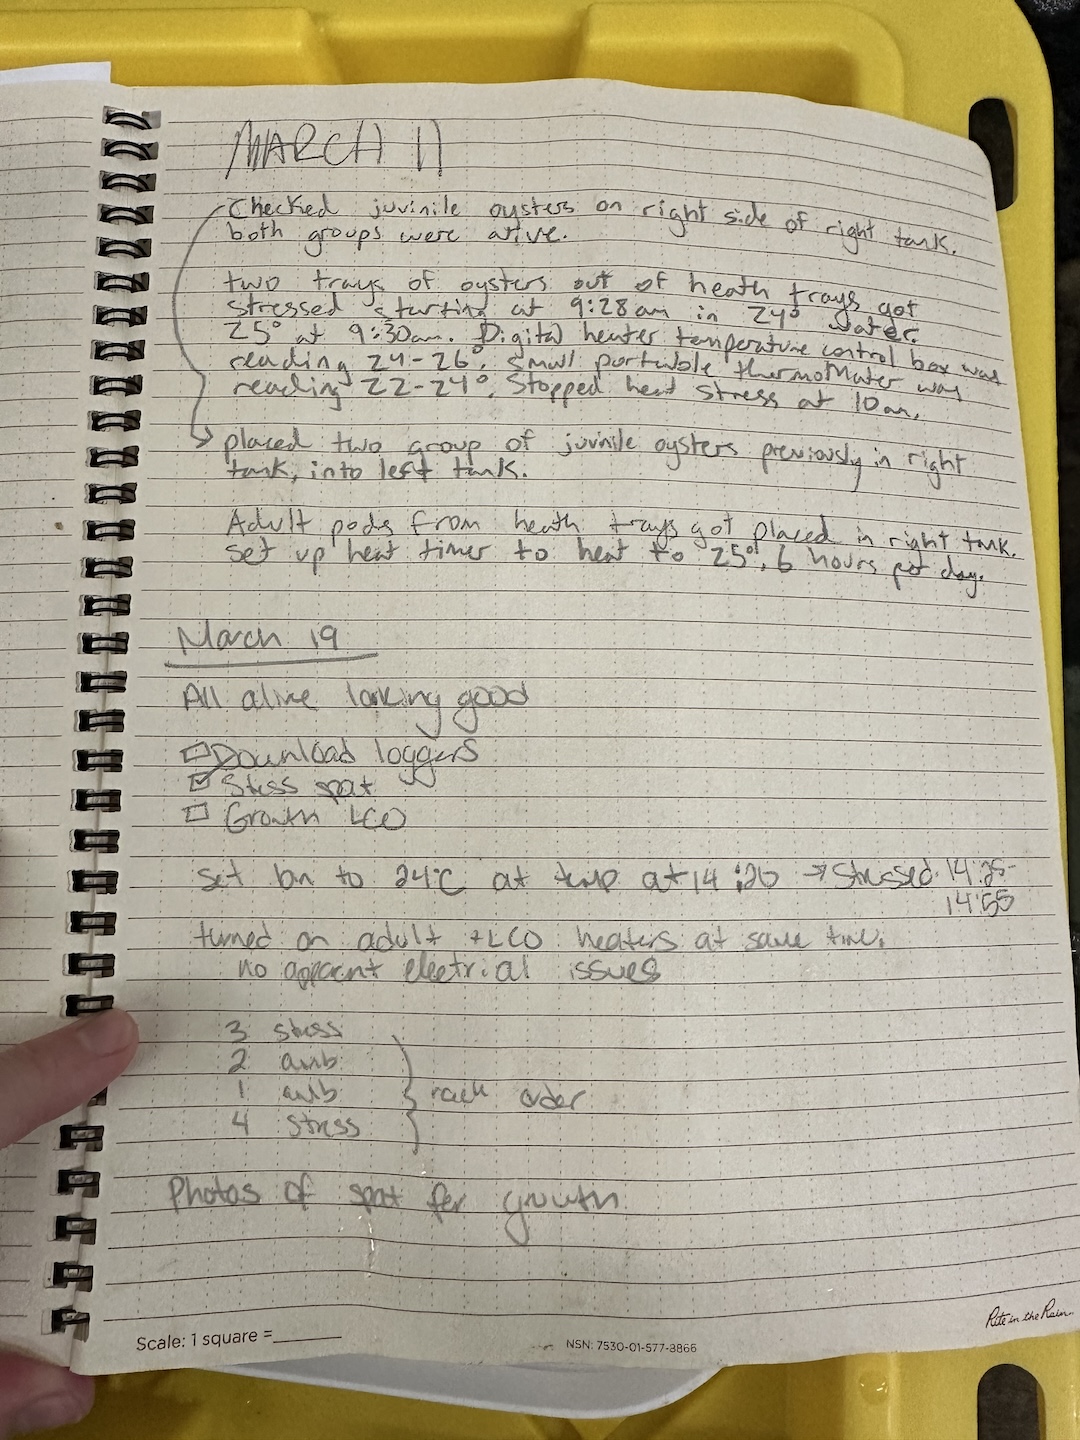 MARCH 11
Checked juvinile oysters on right side of right tank.
both groups were alive.
two trays of oysters out of heath trays got
stressed starting at 9:28am in 24° water.
25° at 9:30am. Digital heater temperature control box was
reading 24-26°. Small portable thermoMater was
reading 22-24°. Stopped heat stress at 10am.
placed two group of juvinile oysters previously in right
tank, into left tank.
Adult pods from heath trays got placed in right tank.
set up heat timer to heat to 25°, 6 hours per day.
March 19
All alive looking good
Download loggers
Stess spat
Growth LCO
Set bin to 24°C at temp at 14:20 → Stressed 14:25-
14:55
turned on adult + LCO heaters at same time.
no apparent eletrial issues
3 stess
2 amb
1 amb
4 stress
rack order
Photos of spat for growth
Scale: 1 square =______
NSN: 7530-01-577-3866
Rite in the Rain